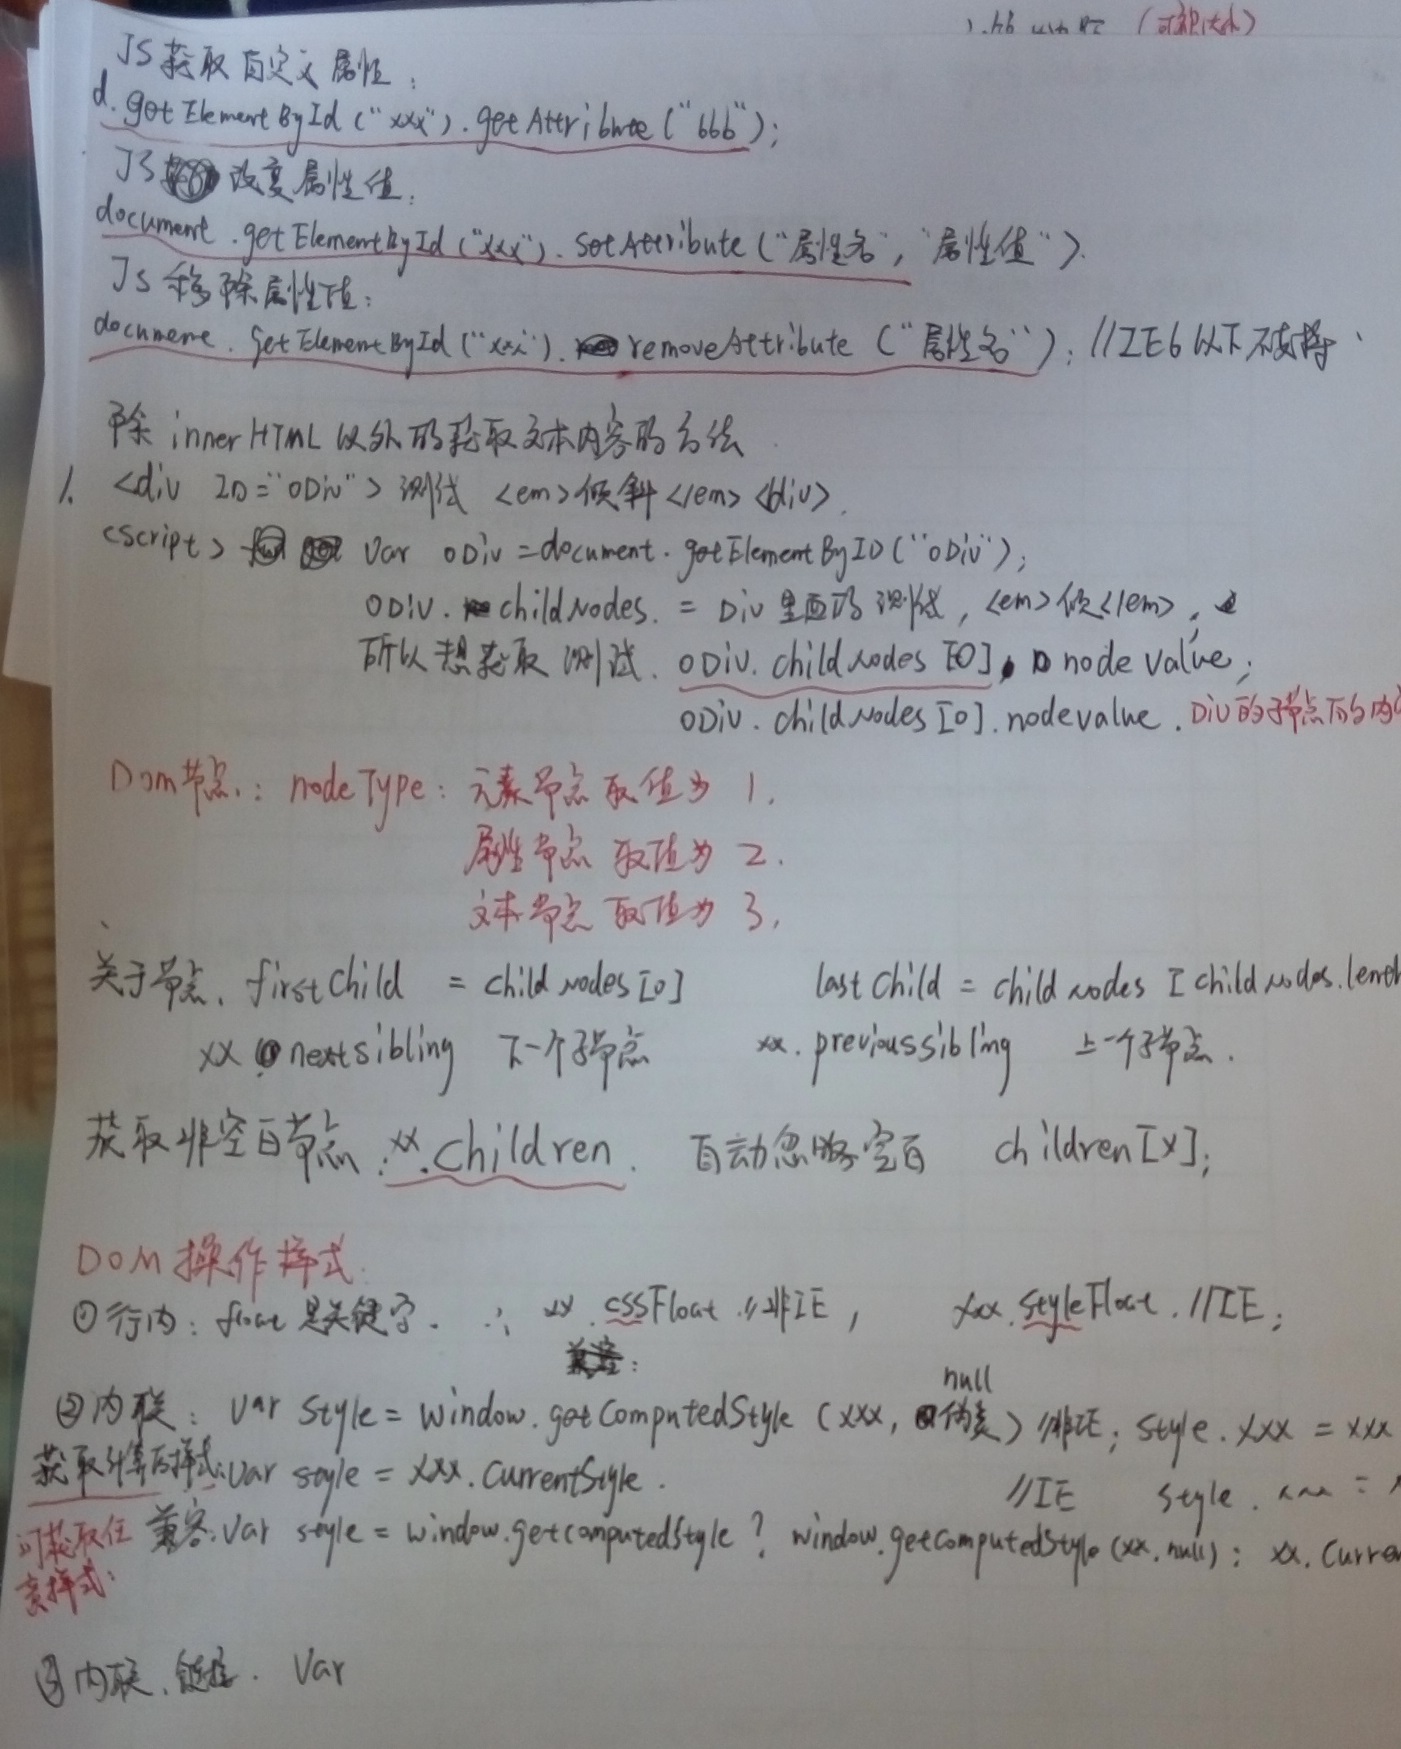 JS获取自定义属性：
d.getElementById("xxx").getAttribute("bbb");
JS改变属性值：
document.getElementById("xxx").setAttribute("属性名","属性值").
Js移除属性值：
document.getElementById("xxx").removeAttribute("属性名"); //IE6以下不支持
除innerHTML以外的获取文本内容的方法
1. <div ID="oDiv">测试 <em>倾斜</em><div>.
<script> var oDiv=document.getElementByID("oDiv");
oDiv.childNodes.=Div里面的测试,<em>倾</em>,
所以想获取测试. oDiv.childNodes[0].nodevalue;
oDiv.childNodes[0].nodevalue. Div的子节点下的内
Dom节点.：nodeType：元素节点取值为1.
属性节点取值为2.
文本节点取值为3.
关于节点. firstChild = childNodes[0] lastChild = childNodes[childNodes.length
xx.nextsibling 下一个子节点 xx.previoussibling 上一个子节点.
获取非空白节点：xx.children. 自动忽略空白 children[x];
DOM操作样式.
①行内：float是关键字. ∴ xx.cssFloat //非IE, xxx.styleFloat.//IE;
null
②内联：var style=window.getComputedStyle(xxx,伪类) //非IE; style.xxx=xxx
获取计算后样式：var style=xxx.currentStyle. //IE style.
可获取任意样式： 兼容：var style=window.getcomputedStyle?window.getcomputedStyle(xx,null):xx.curre
③内联.链接. Var